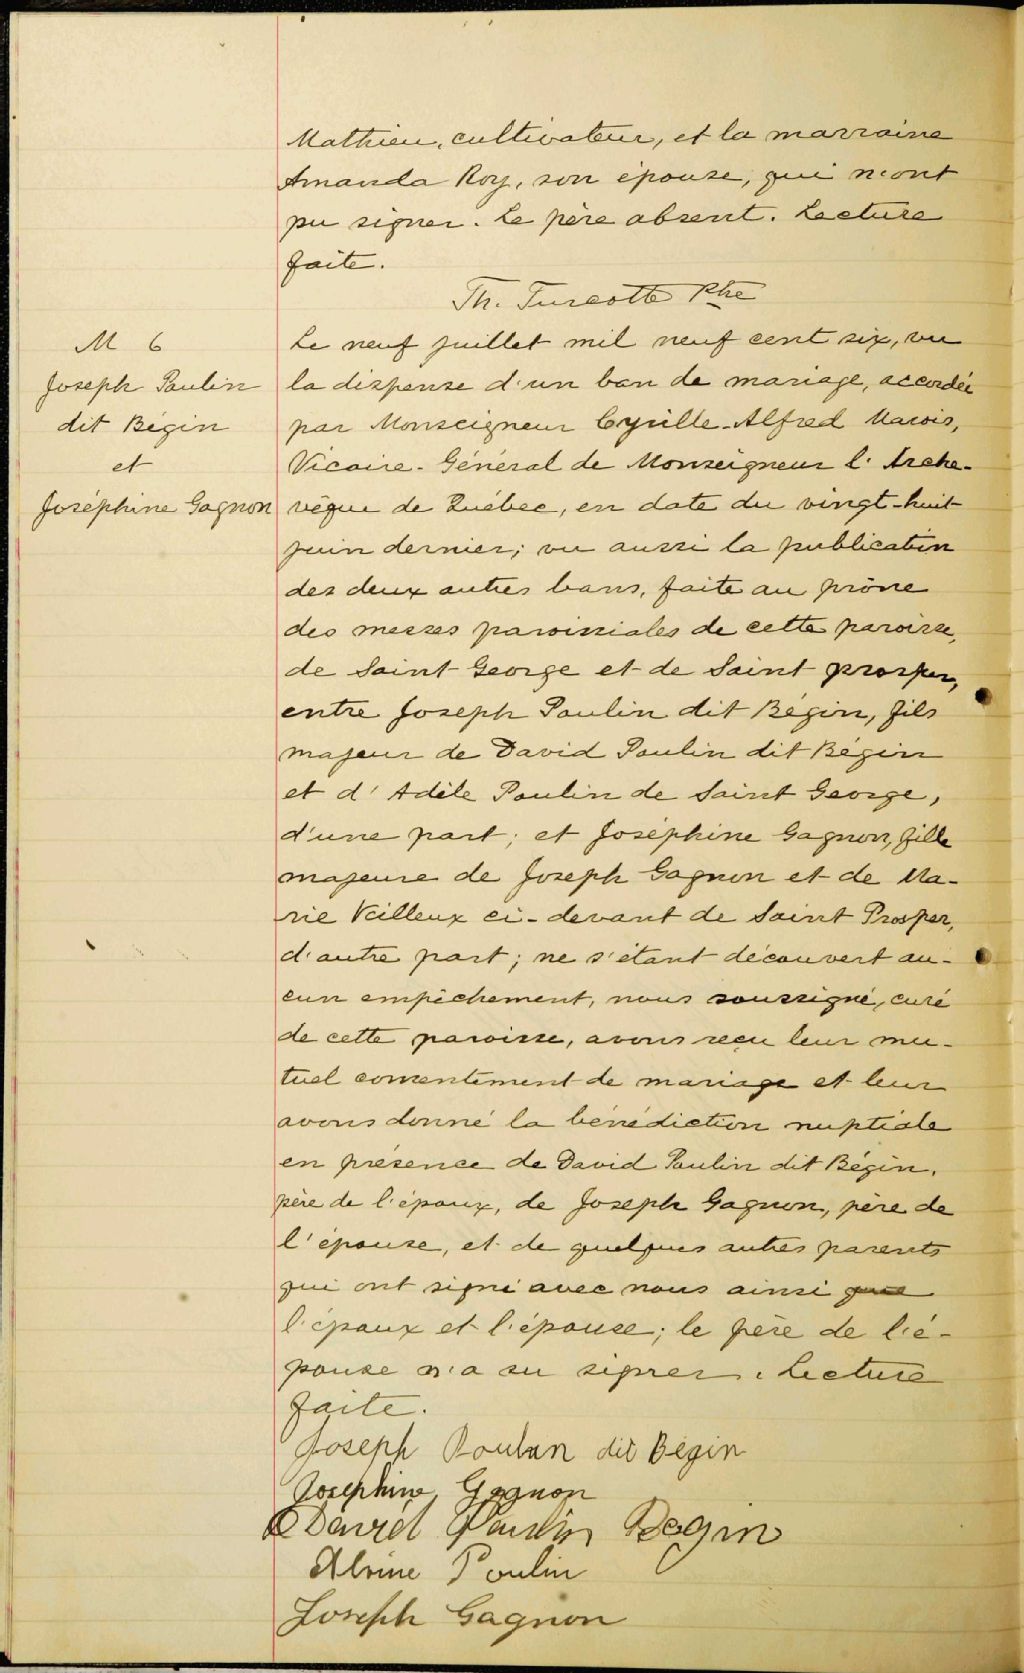 Mathieu, cultivateur, et la marraine
Amanda Roy, son épouse, qui n'ont
pu signer. Le père absent. Lecture
faite.
Th. Turcotte Ptre
M 6
Joseph Poulin
dit Bégin
et
Joséphine Gagnon
Le neuf juillet mil neuf cent six, vu
la dispense d'un ban de mariage, accordée
par Monseigneur Cyrille-Alfred Marois,
Vicaire-Général de Monseigneur l'Arche-
vêque de Québec, en date du vingt-huit
juin dernier; vu aussi la publication
des deux autres bans, faite au prône
des messes paroissiales de cette paroisse,
de Saint George et de Saint prosper,
entre Joseph Poulin dit Bégin, fils
majeur de David Poulin dit Bégin
et d'Adèle Poulin de Saint George,
d'une part; et Joséphine Gagnon, fille
majeure de Joseph Gagnon et de Ma-
rie Veilleux ci-devant de Saint Prosper,
d'autre part; ne s'étant découvert au-
cun empêchement, nous soussigné, curé
de cette paroisse, avons reçu leur mu-
tuel consentement de mariage et leur
avons donné la bénédiction nuptiale
en présence de David Poulin dit Bégin,
père de l'époux, de Joseph Gagnon, père de
l'épouse, et de quelques autres parents
qui ont signé avec nous ainsi que
l'époux et l'épouse; le père de l'é-
pouse n'a su signer. Lecture
faite.
Joseph Poulin dit Bégin
Josephine Gagnon
David Poulin Begin
Poulin
Joseph Gagnon